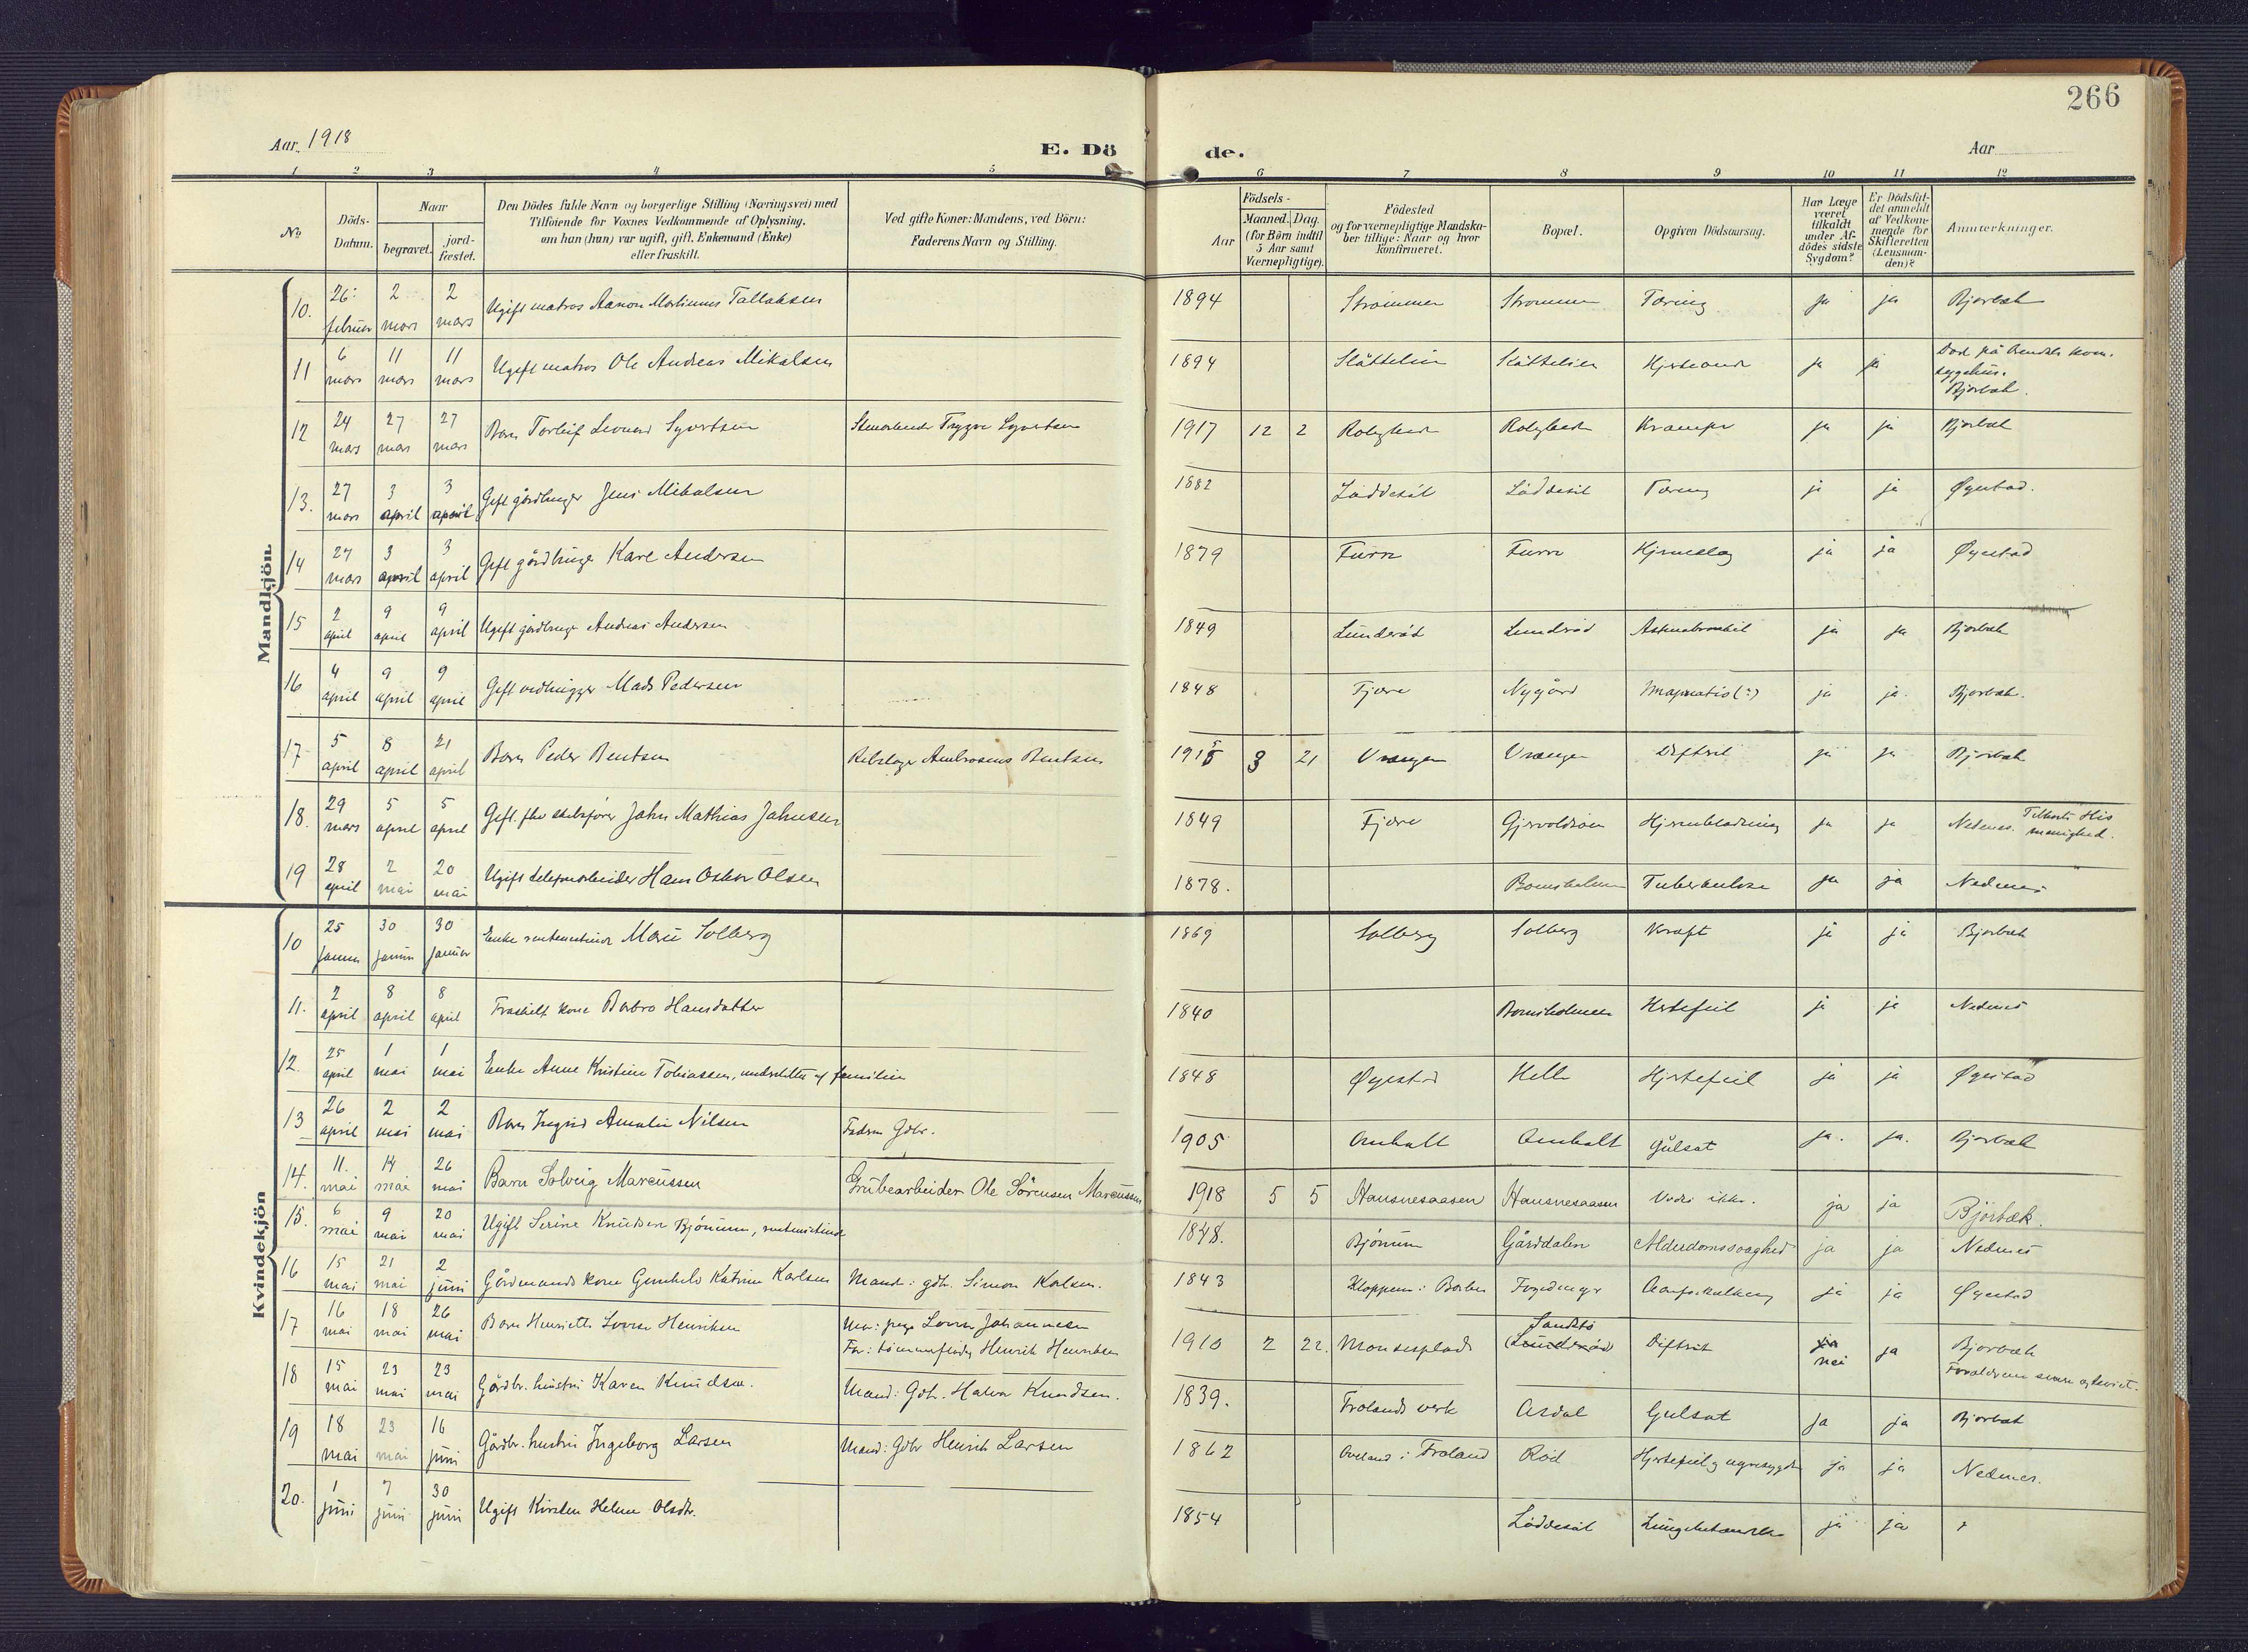 266
Aar 1918
E. Dö
de.
Aar
1 2 3 4 5 6 7 8 9 10 11 12
No
Döds-
Datum.
Naar
begravet.
jord-
fæstet.
Den Dödes fulde Navn og borgerlige Stilling (Næringsvei) med
Tilföiende for Voxnes Vedkommende af Oplysning,
om han (hun) var ugift, gift, Enkemand (Enke)
eller fraskilt.
Ved gifte Koner: Mandens, ved Börn:
Faderens Navn og Stilling.
Aar
Födsels-
Maaned. Dag.
(for Börn indtil
5 Aar samt
Værnepligtige).
Födested
og for værnepligtige Mandska-
ber tillige: Naar og hvor
konfirmeret.
Bopæl.
Opgiven Dödsaarsag.
Har Læge
været
tilkaldt
under Af-
dödes sidste
Sygdom?
Er Dödsfal-
det anmeldt
af Vedkom-
mende for
Skifteretten
(Lensman-
den)?
Anmærkninger.
Mandkjön.
10. 26. februar 2 mars 2 mars Ugift matros Aanon Martinius Tallaksen 1894 Strømmen Strømmen Tæring ja ja Bjorbæk
11 6 mars 11 mars 11 mars Ugift matros Ole Andreas Mikalsen 1894 ja ja Død på Arendals kom.
sygehus.
Bjorbæk.
12 24 mars 27 mars 27 mars Barn Torleif Leonard Syvertsen Stenarbeider Trygve Syvertsen 1917 12 2 Krampe ja ja Bjorbæk
13. 27 mars 3 april 3 april Gift gårdbruger Jens Mikalsen 1882 Løddesøl Løddesøl Tæring ja ja Øyestad.
14 27 mars 3 april 3 april Gift gårdbruger Karl Andersen 1879 Furre Furre ja ja Øyestad
15 2 april 9 april 9 april Ugift gårdbruger Andreas Andersen 1849 Lunderød Lunderød ja ja Bjorbæk
16 4 april 9 april 9 april Gift vedhugger Mads Pedersen 1848 Fjære Nygård ja ja. Bjorbæk.
17 5 april 8 april 21 april Barn Peder Bentsen Rebslager Ambrosius Bentsen 1915 3 21 Vrengen Vrengen Difteri ja ja Bjorbæk
18. 29 mars 5 april 5 april Gift. fhv skibsfører Jahn Mathias Jahnsen 1849 Fjære Hjerneblødning ja ja Nedenes. Tilhørte His
menighed.
19 28 april 2 mai 20 mai Ugift telefonarbeider Hans Oskar Olsen 1878. Bomsholmen Tuberkulose ja ja Nedenes
Kvindekjön
10 25 Januar 30 januar 30 Januar Enke Marie Solberg 1869 Solberg Solberg Kræft ja ja Bjorbæk
11. 2 april 8 april 8 april Fraskilt kone Barbro Hansdatter 1840 Bomsholmen Hjertefeil ja ja Nedenes
12. 25 april 1 mai 1 mai Enke Anne Kristine Tobiassen, understøttet af familien 1848 Øyestad Helle Hjertefeil ja ja Øyestad
13 26 april 2 mai 2 mai Barn Ingrid Amalie Nilsen Faderen Gdbr. 1905 Amholt Amholt Gulsot ja. ja. Bjorbæk
14. 11. mai 14 mai 26 mai Barn Solveig Marcussen Grubearbeider Ole Sørensen Marcussen 1918 5 5 Hausnesaasen Hausnesaasen Vides ikke. ja ja Bjorbæk.
15. 6 mai 9 mai 20 mai Ugift Serine Knudsen Bjønnum, 1848. Bjønnum Gårddalen Alderdomssvaghed ja ja Nedenes
16 15 mai 21 mai 2 juni Gårdmands kone Gunhild Katrine Karlsen Mand: gdb. Simon Karlsen. 1843 ja ja Øyestad
17 16 mai 18 mai 26 mai Barn Henriette Lovise Henriksen Mor: pige Lovise Johannesen
Far: tømmerfløder Henrik Henriksen 1910 2 22. Monsesplads Sandstø (Lunderød) Difterit ja nei ja Bjorbæk
18 15 mai 23 mai 23 mai Gårdbr. hustru Karen Knudsen. Mand: Gdb. Halvor Knudsen. 1839. Frolands verk Asdal Gulsot ja ja Bjorbæk
19 18 mai 23 mai 16 juni Gårdbr. hustru Ingeborg Larsen Mand: Gdbr Henrik Larsen 1862 Overland i Froland Rød Hjertefeil og nyresygdom ja ja Nedenes.
20. 1 juni 7 juni 30 juni Ugift Kirsten Helene Olsdtr. 1854 Løddesøl Lungebetændelse ja ja